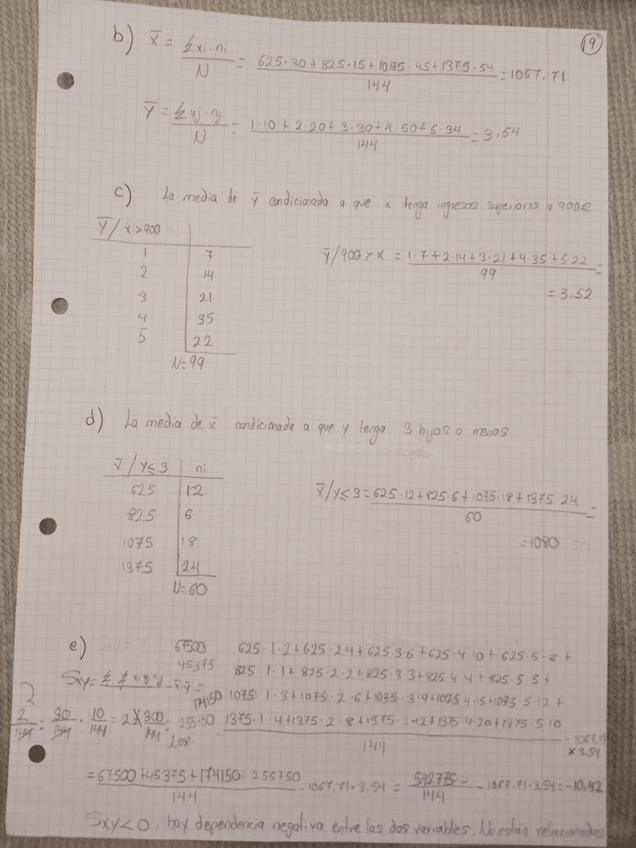 19
b) x̄ = Σxi·ni / N = 625·30+825·15+1075·45+1375·54 / 144 = 1067,71
Ȳ = Σyj·nj / N = 1·10+2·20+3·30+4·50+5·34 / 144 = 3,54
c) La media de ȳ condicionada a que x tenga ingresos superiores a 900€
Ȳ/x>900
1 7
2 14
3 21
4 35
5 22
N=99
Ȳ/900>x = 1·7+2·14+3·21+4·35+5·22 / 99 =
= 3,52
d) La media de x̄ condicionada a que y tenga 3 hijos o menos
x̄/y≤3 ni
625 12
825 6
1075 18
1375 24
N=60
x̄/y≤3 = 625·12+825·6+1075·18+1375·24 / 60 =
=1080
e)
67500 625·1·2+625·2·4+625·3·6+625·4·10+625·5·8+
45375 825·1·1+825·2·2+825·3·3+825·4·4+825·5·5+
Sxy = ΣΣxiyjnij / - x̄·ȳ =
174150 1075·1·3+1075·2·6+1075·3·9+1075·4·15+1075·5·12+
255750 1375·1·4+1375·2·8+1375·3·12+1375·4·20+1375·5·10 / 144 - 1067,71 × 3,54
2/144 = 30/144 · 10/144 = 2 × 300/144 = 2,08
= 67500+45375+174150+255750 / 144 - 1067,71·3,54 = 542775 / 144 - 1067,71·3,54 = -10,42
Sxy<0, hay dependencia negativa entre las dos variables. No están relacionadas